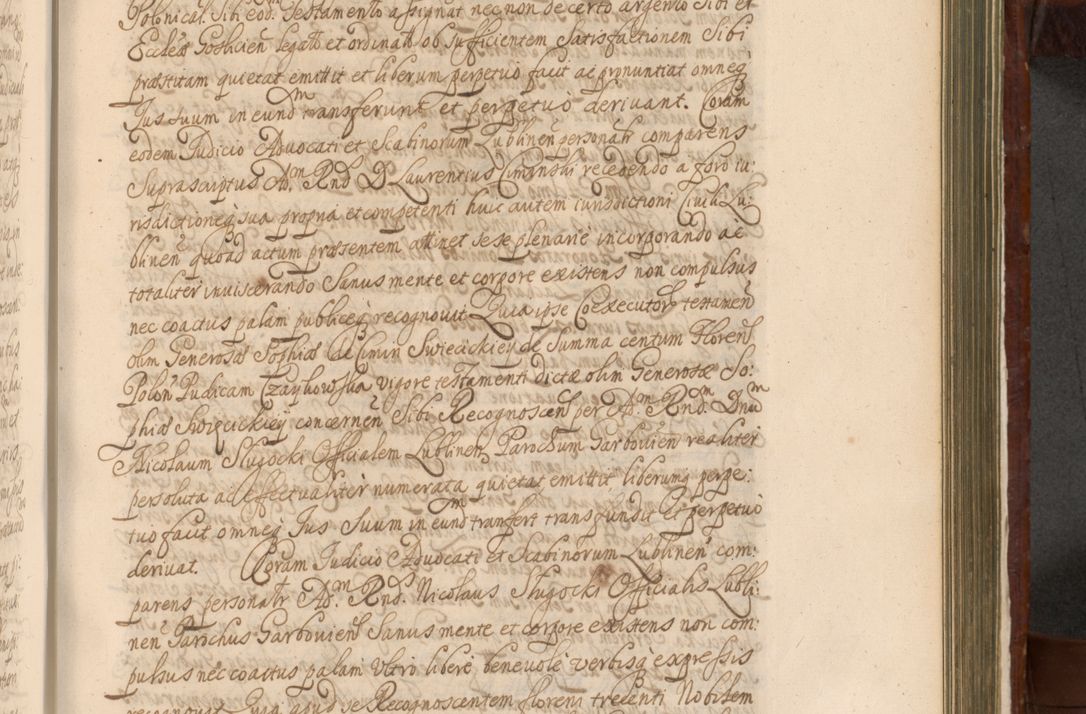 Polonical. Sibi eod. Testamento assignat nec non de certo argento Sibi et
Eccleæ Goshcien legatt et ordinatt ob sufficientem Satisfactionem Sibi
præstitam quietat emittit et liberum perpetuò facit ac pronuntiat omneq
Jus suum in eund transferunt et perpetuò derivant. Coram
eodem Judicio Advocati et Scabinorum Lublinen personatr comparens
Suprascriptus Adm Rnd D Laurentius Ciminski recedendo a foro iu:
risdictioneq sua propria et competenti huic autem iurisdictioni Civili Lu:
blinen quoad actum præsentem attinet se se plenariè incorporando ac
totaliter inviscerando Sanus mente et corpore existens non compulsus
nec coactus palam publiceq recognovit. Quia ipse Coexecutor testamen
olim Generosæ Sophiæ de Cimin Swiecickiey de Summa centum Floren
Polon Pudicam Czaykowska vigore testamenti dictæ olim Generosæ So:
phiæ Swięcickiey concernen Sibi Recognoscen per Adm. Rndm. Dnm
Nicolaum Sługocki Officialem Lublinen Parochum Garbovien realiter
persoluta ac effectualiter numerata quietat emittit liberumq perpe:
tuò facit omneq Jus Suum in eund transfert transfundit et perpetuò
derivat. Coram Judicio Advocati et Scabinorum Lublinen com:
parens personatr Adm. Rnd. Nicolaus Sługocki Officialis Lubli:
nen Parochus Garbovien Sanus mente et corpore existens non com:
pulsus nec coactus palam Ultro liberè benevolè verbisq expressis
recognovit Quia apud se Recognoscentem floreni trecenti Nobilem